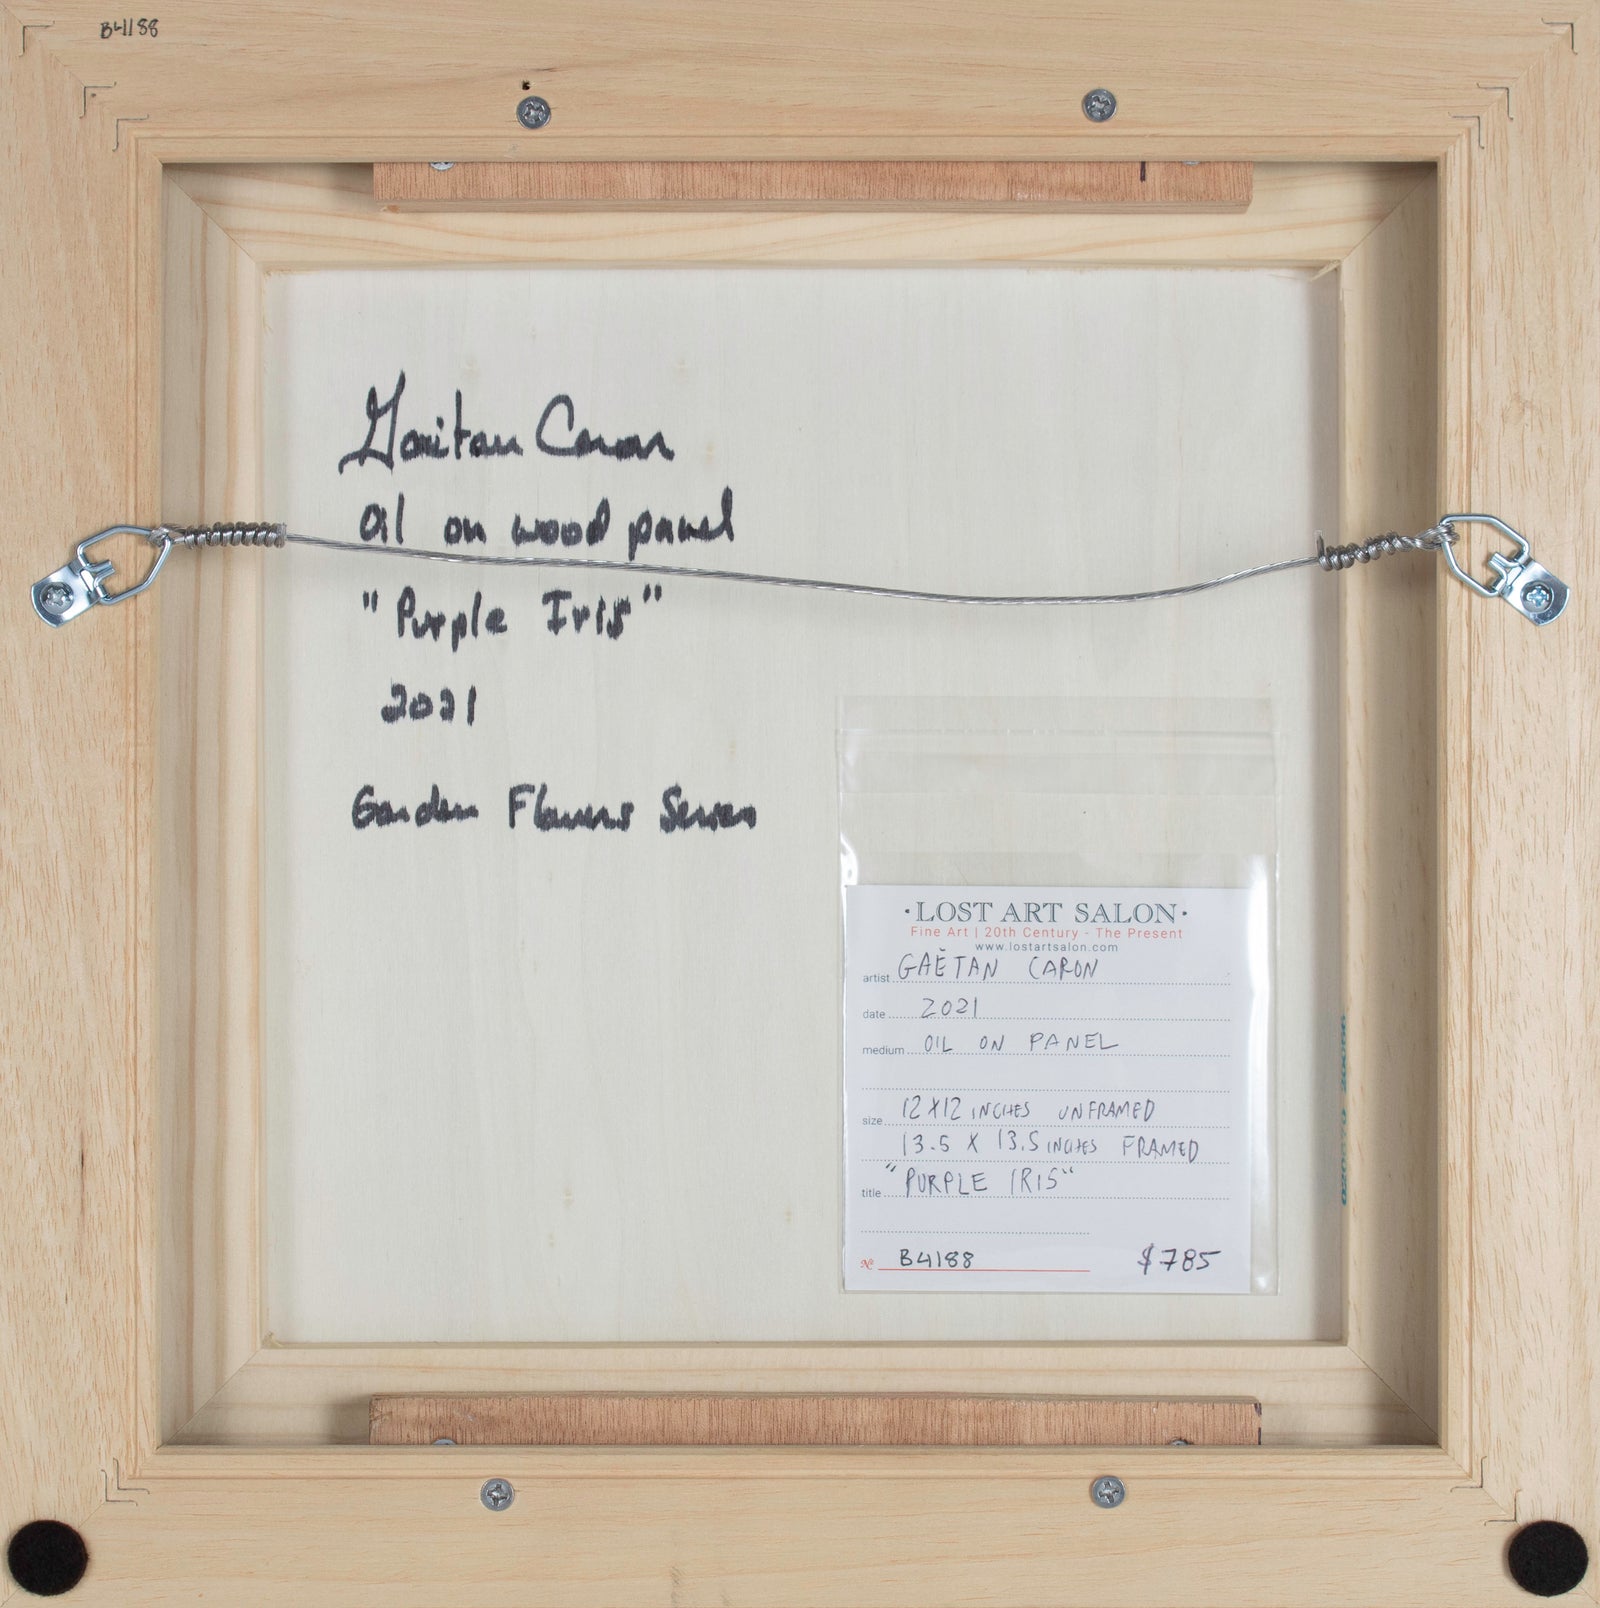 B4188
Gaëtan Caron
Oil on wood panel
"Purple Iris"
2021
Garden Flowers Series
·LOST ART SALON·
Fine Art | 20th Century - The Present
www.lostartsalon.com
artist GAËTAN CARON
date 2021
medium OIL ON PANEL
size 12 X 12 INCHES UNFRAMED
13.5 X 13.5 INCHES FRAMED
title "PURPLE IRIS"
№ B4188 $785